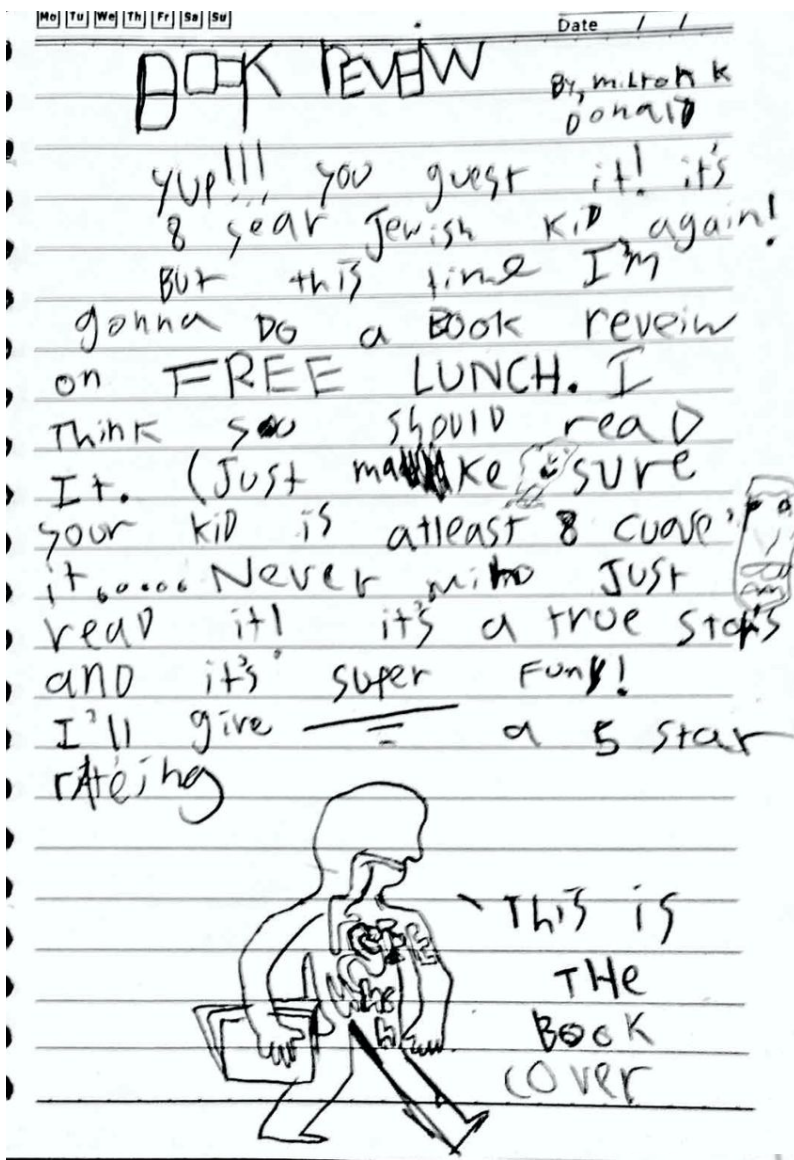 Mo Tu We Th Fr Sa Su
Date / /
BOOK REVEIW
By, milton k
Donald
YUP!!! you guest it! it's
8 year Jewish KiD again!
But this time I'm
gonna DO a BOOK reveiw
on FREE LUNCH. I
Think you shoulD reaD
It. (Just make sure
your kiD is atleast 8 cuase'
it...... Never minD Just
reaD it! it's a true story
anD it's super Funy!
I'll give a 5 star
rateing
FREE
Lunch
This is
THe
BOOK
cover